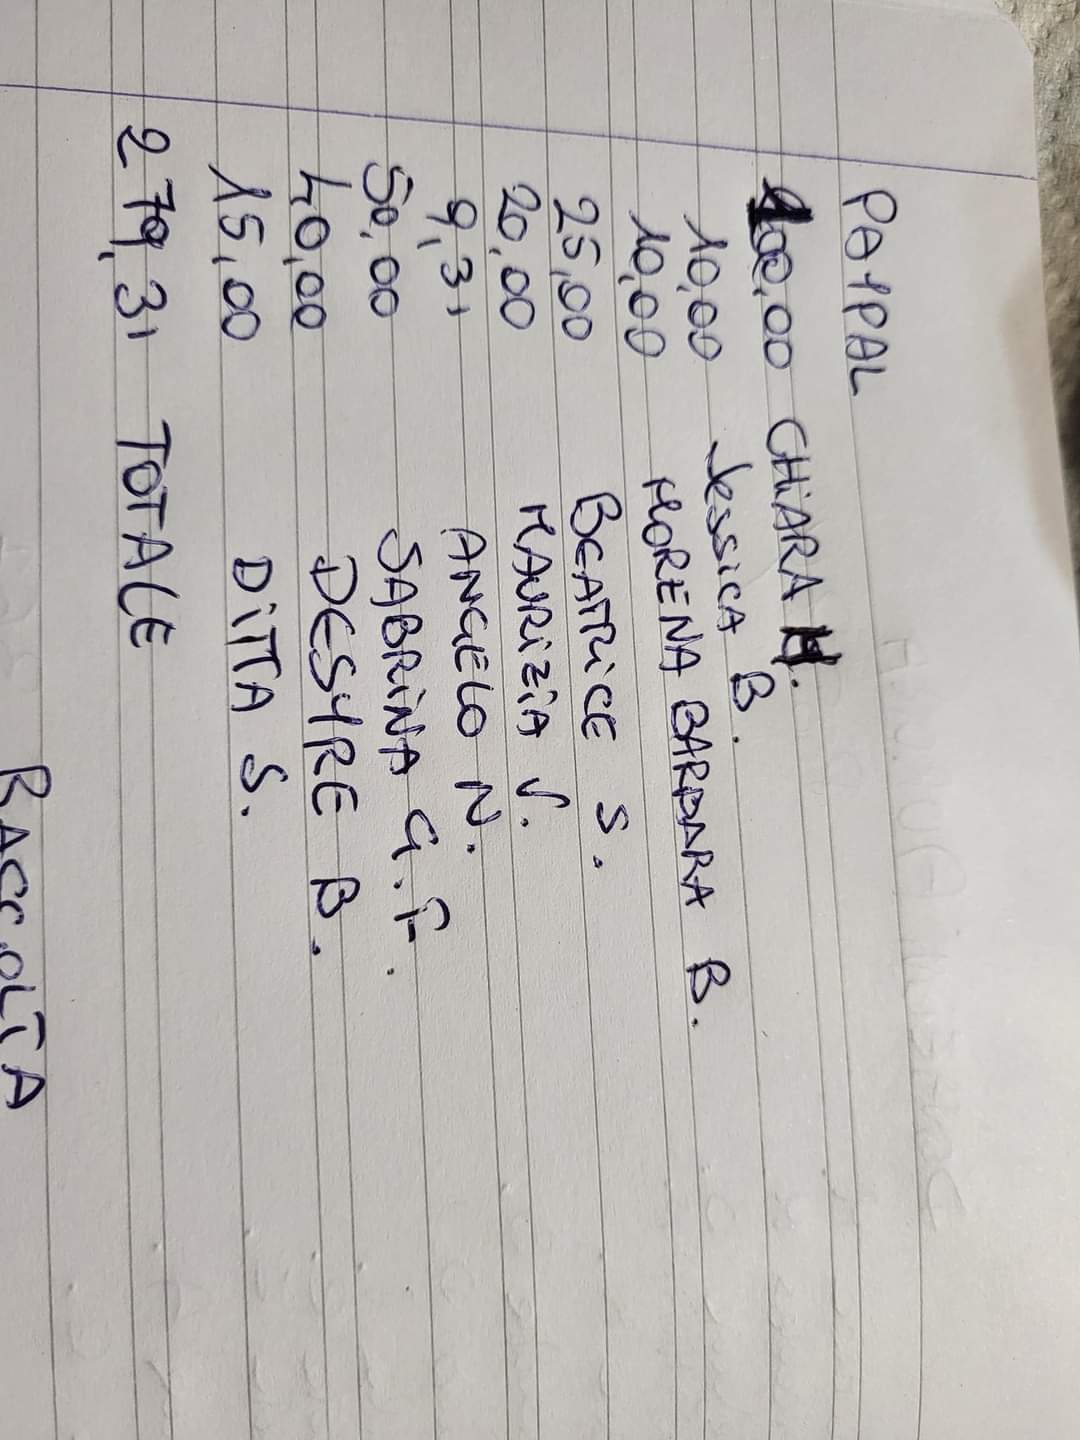 PAYPAL
100,00 CHIARA
10,00 Jessica B.
10,00 MORENA BARBARA B.
25,00 BEATRICE S.
20,00 MAURIZIA V.
9,31 ANGELO N.
50,00 SABRINA G.F.
40,00 DESYRE B.
15,00 DITTA S.
279,31 TOTALE
RACCOLTA